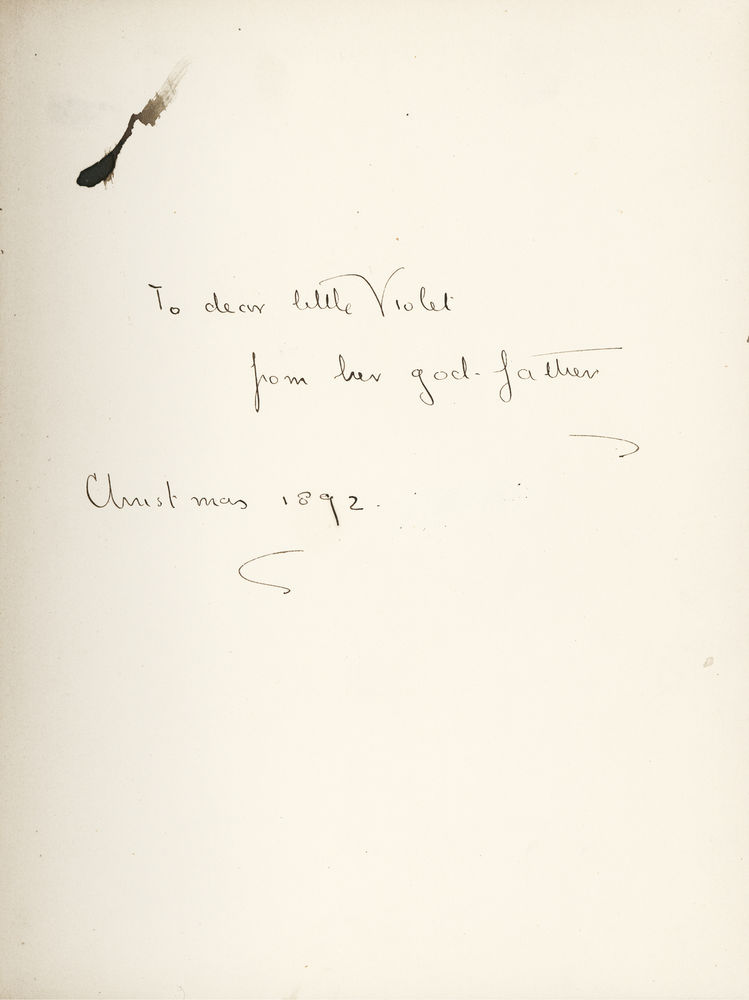 To dear little Violet
from her god-father
Christmas 1892.